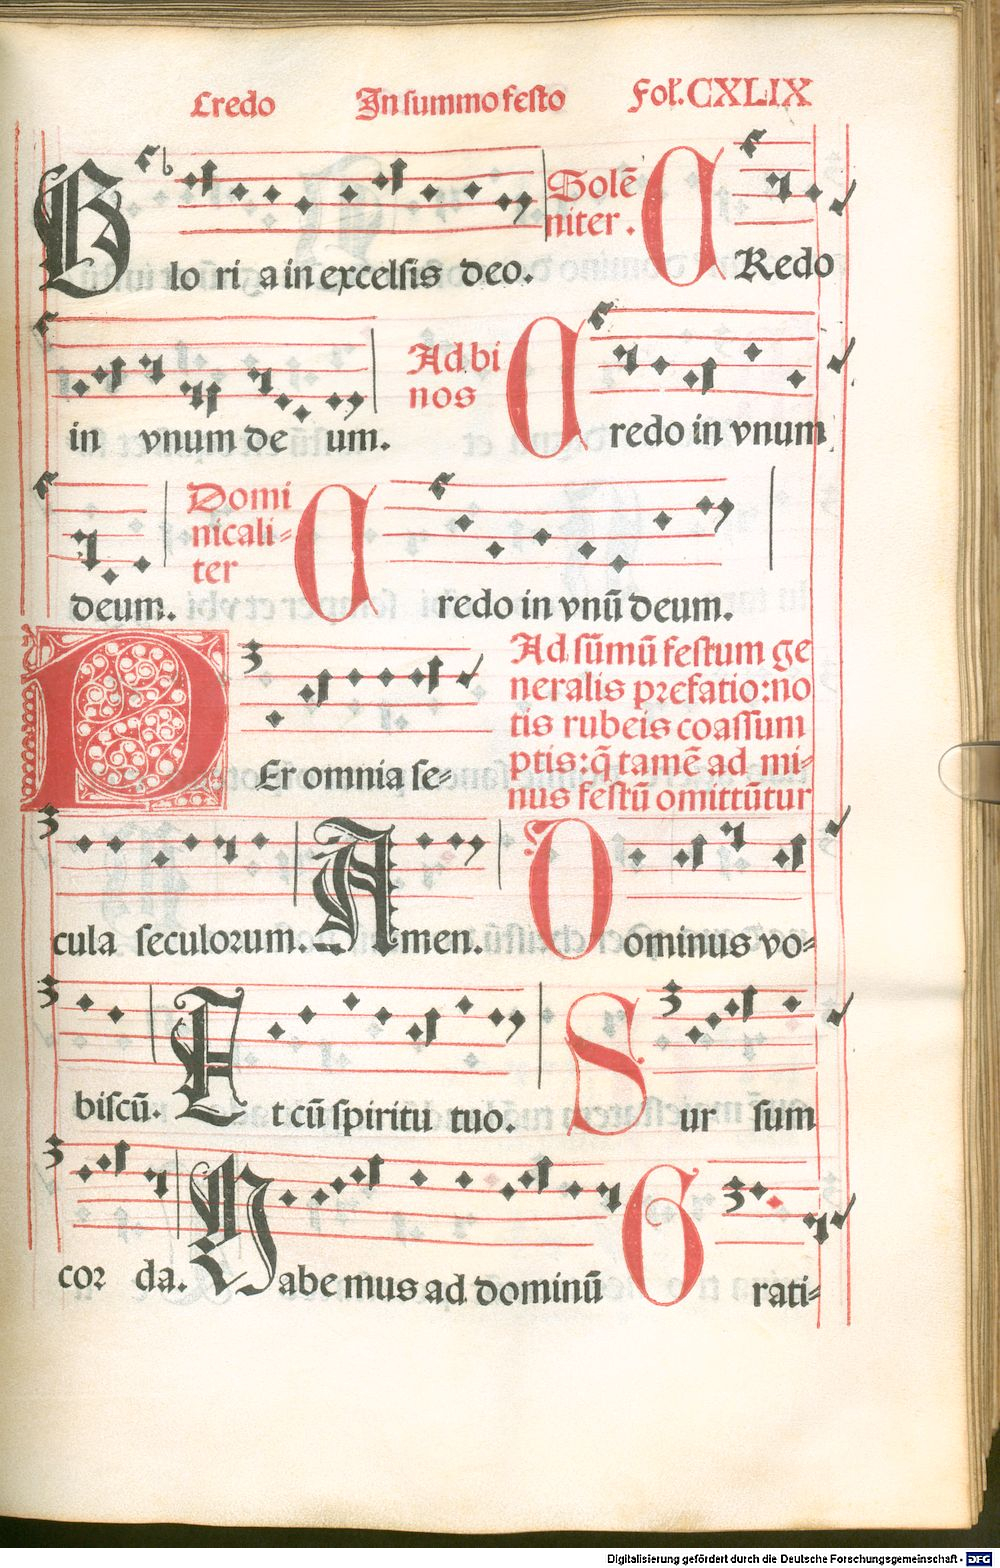 Credo In summo festo Fol. CXLIX
Glo ri a in excelsis deo. Solē
niter. CRedo
in vnum de um. Ad bi
nos Credo in vnum
deum. Domi
nicali-
ter Credo in vnū deum.
PEr omnia se- Ad sūmū festum ge
neralis prefatio: no
tis rubeis coassum
ptis: q̄ tamē ad mi-
nus festū omittūtur
cula seculorum. Amen. Dominus vo-
biscū. Et cū spiritu tuo. Sur sum
cor da. Habe mus ad dominū Grati-
Digitalisierung gefördert durch die Deutsche Forschungsgemeinschaft - DFG